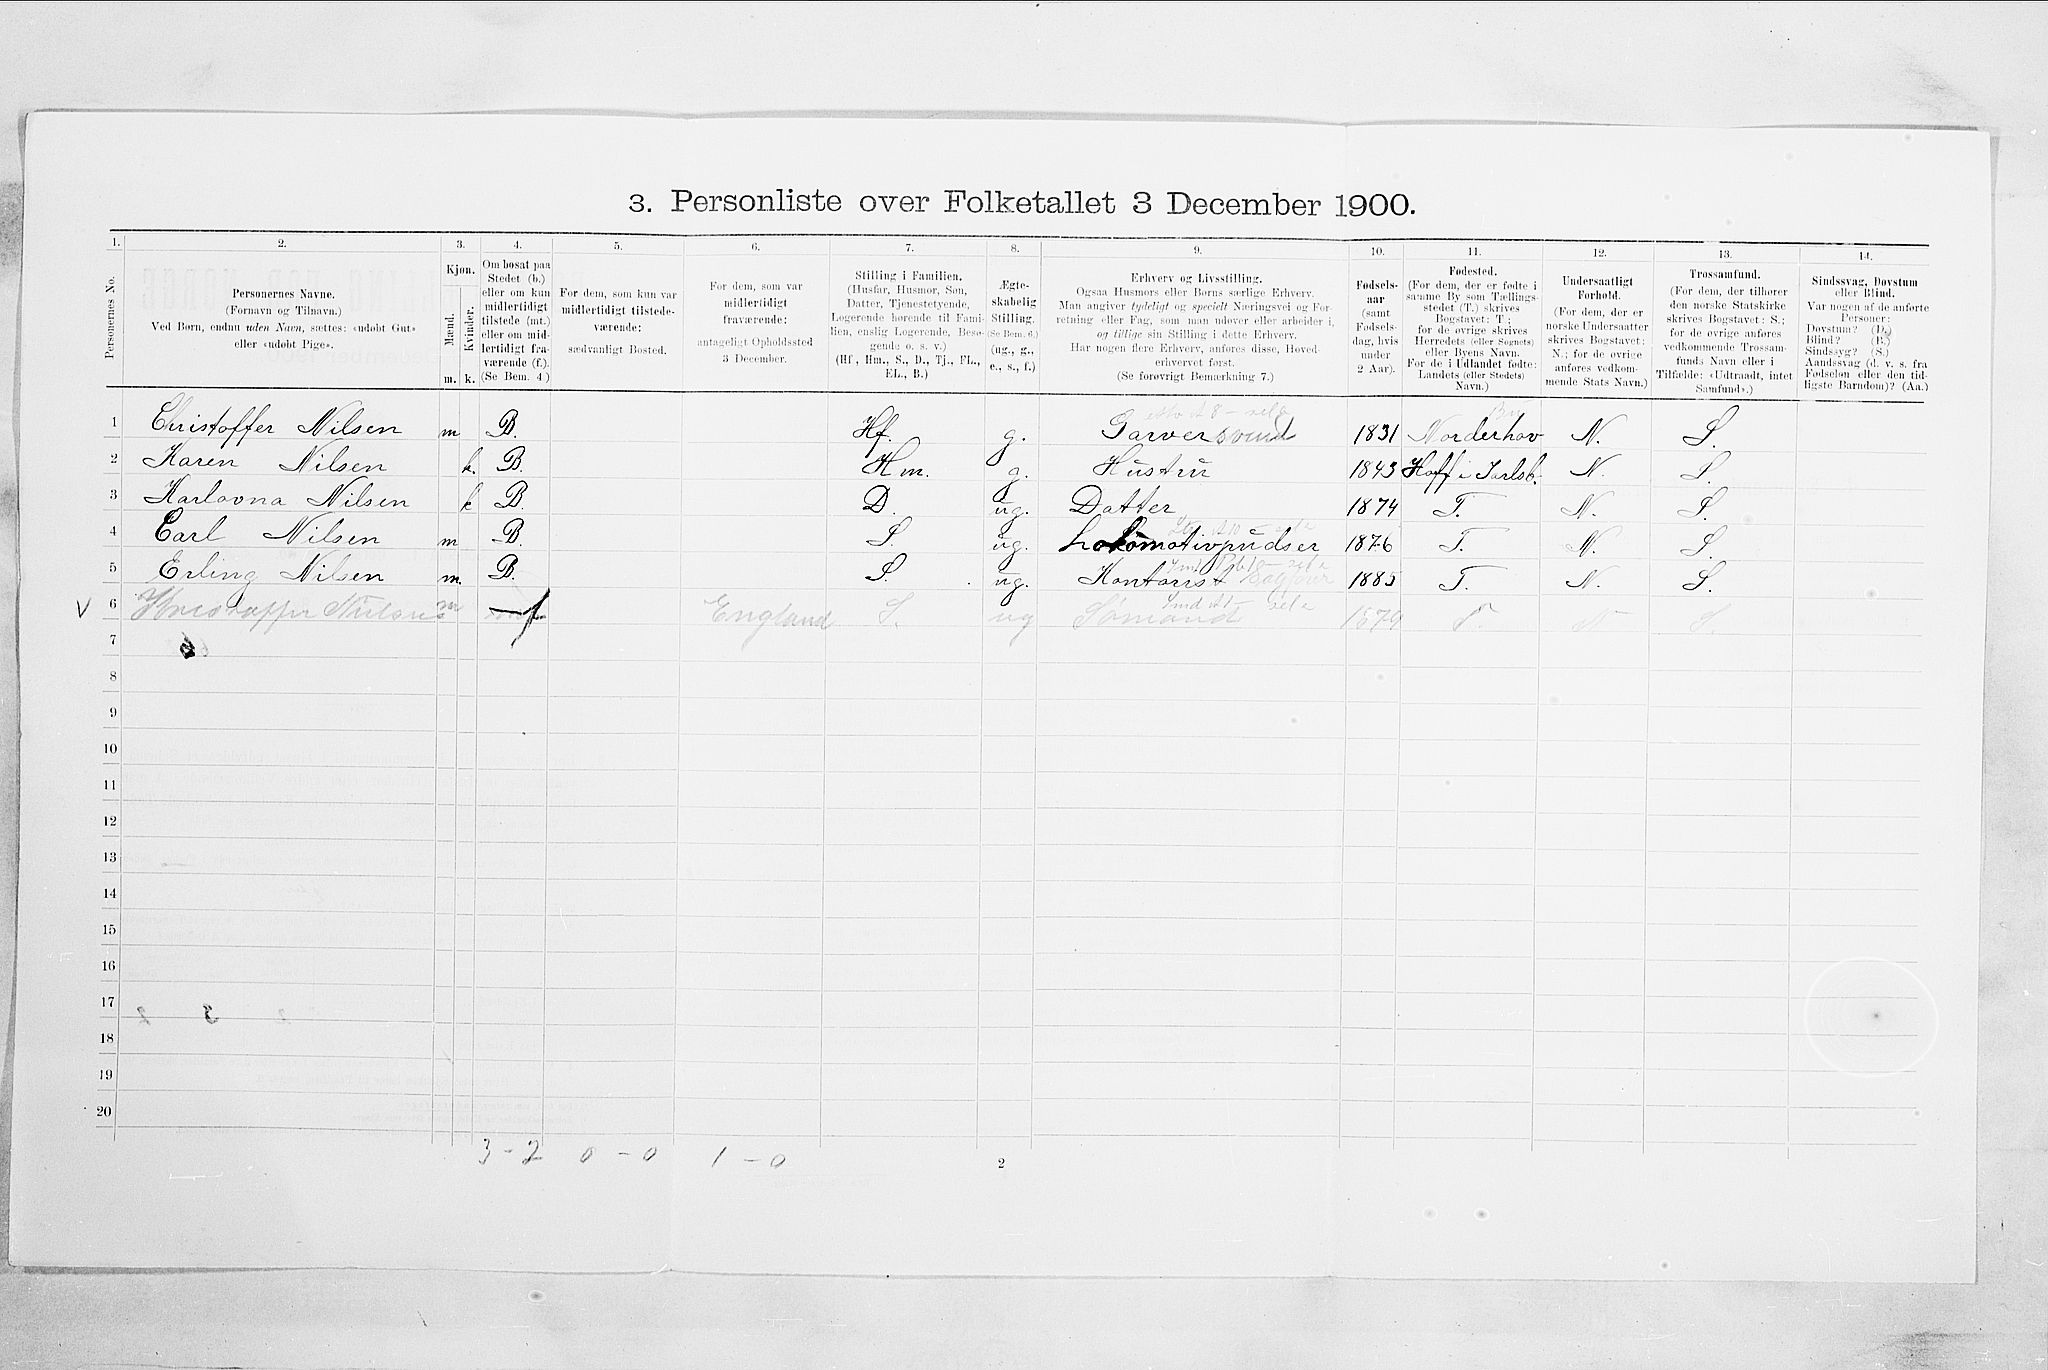 3. Personliste over Folketallet 3 December 1900.
1. 2. 3. 4. 5. 6. 7. 8. 9. 10. 11. 12. 13. 14.
Personernes No.
Personernes Navne.
(Fornavn og Tilnavn.)
Ved Børn, endnu uden Navn, sættes: «udøbt Gut»
eller «udøbt Pige».
Kjøn.
Mænd.
Kvinder.
m. k.
Om bosat paa
Stedet (b.)
eller om kun
midlertidigt
tilstede (mt.)
eller om mid-
lertidigt fra-
værende (f.).
(Se Bem. 4.)
For dem, som kun var
midlertidigt tilstede-
værende:
sædvanligt Bosted.
For dem, som var
midlertidigt
fraværende:
antageligt Opholdssted
3 December.
Stilling i Familien.
(Husfar, Husmor, Søn,
Datter, Tjenestetyende,
Logerende hørende til Fami-
lien, enslig Logerende, Besø-
gende o. s. v.)
(Hf., Hm., S., D., Tj., FL.,
EL., B.)
Ægte-
skabelig
Stilling.
(Se Bem. 6.)
(ug., g.,
e., s., f.)
Erhverv og Livsstilling.
Ogsaa Husmors eller Børns særlige Erhverv.
Man angiver tydeligt og specielt Næringsvei og For-
retning eller Fag, som man udøver eller arbeider i,
og tillige sin Stilling i dette Erhverv.
Har nogen flere Erhverv, anføres disse, Hoved-
erhvervet først.
(Se forøvrigt Bemærkning 7.)
Fødsels-
aar
(samt
Fødsels-
dag, hvis
under
2 Aar).
Fødested.
(For dem, der er fødte i
samme By som Tællings-
stedet (T.) skrives
Bogstavet: T.;
for de øvrige skrives
Herredets (eller Sognets)
eller Byens Navn.
For de i Udlandet fødte:
Landets (eller Stedets)
Navn.)
Undersaatligt
Forhold.
(For dem, der er
norske Undersaatter
skrives Bogstavet:
N.; for de øvrige
anføres vedkom-
mende Stats Navn.)
Trossamfund.
(For dem, der tilhører
den norske Statskirke
skrives Bogstavet: S.;
for de øvrige anføres
vedkommende Trossam-
funds Navn eller i
Tilfælde: «Udtraadt, intet
Samfund».)
Sindssvag, Døvstum
eller Blind.
Var nogen af de anførte
Personer:
Døvstum? (D.)
Blind? (B.)
Sindssyg? (S.)
Aandssvag (d. v. s. fra
Fødselen eller den tid-
ligste Barndom)? (Aa.)
1 Christoffer Nilsen m B. Hf. g. Garversvend 1831 Norderhov N. S.
2 Karen Nilsen k. B. Hm. g. Hustru 1843 Hoff i Jarlsb. N. S.
3 Karlovna Nilsen k B. D. ug. Datter 1874 T. N. S.
4 Carl Nilsen m B. S. ug. Lokomotivpudser 1876 T. N. S.
5 Erling Nilsen m. B. S. ug. Kontorist 1885 T. N. S.
V 6 Kristoffer Nilsen m f England S. ug Sømand 1879 T. N S.
7
8
9
10
11
12
13
14
15
16
17
18
19
20
3 - 2 0 - 0 1 - 0
2